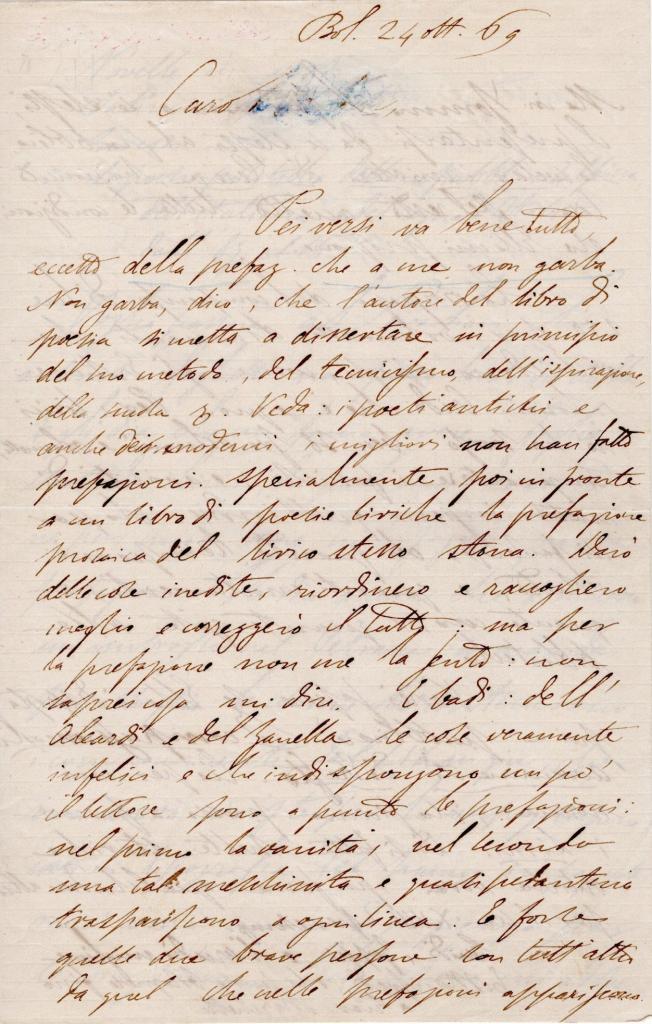 Bol. 24 ott. 69
Caro
Pei versi va bene tutto,
eccetto della prefaz. che a me non garba.
Non garba, dico, che l'autore del libro di
poesia si metta a dissertare in principio
del suo metodo, del tecnicismo, dell'ispirazione,
della scuola Veda: i poeti antichi e
anche dei moderni i migliori non han fatto
prefazioni. Specialmente poi in fronte
a un libro di poesie liriche la prefazione
prosaica del lirico stesso stona. Darò
delle cose inedite, riordinerò e raccoglierò
meglio e correggerò il tutto: ma per
la prefazione non me la sento: non
saprei cosa mi dire. E badi: dell'
Aleardi e del Zanella le cose veramente
infelici e che indispongono un po'
il lettore sono a punto le prefazioni:
nel primo la vanità, nel secondo
una tal meschinità e quasi pedanteria
traspariscono a ogni linea. E forse
quelle due brave persone son tutt'altri
da quel che nelle prefazioni appariscono.